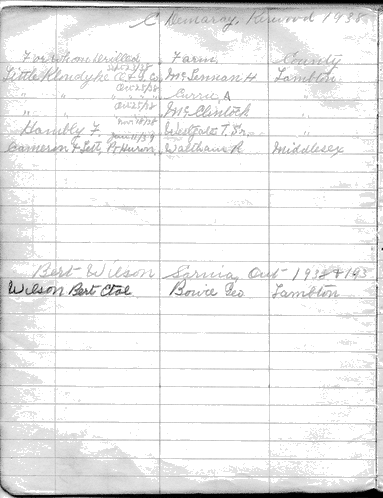 C Demaray, Kerwood 1938
For Whom Drilled Farm County
Little Klondyke O & G Co McLennan H. Lambton
Oct 22/38 " " " Currie A "
Oct 25/38 " " McClintock
Nov 18/38
Hambly F. Westgate T. Sr. "
Cameron & Sett, Pt Huron Walthaus R Middlesex
Bert Wilson Sarnia Ont 1938 & 193
Wilson Bert Etal Bowie Geo Lambton